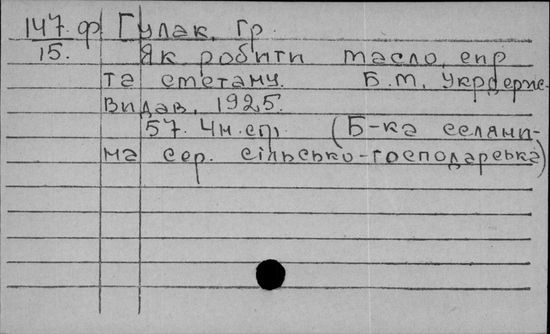 147.ф Гулак, Гр.
15. Як робити масло, сир
та сметану. Б.м. Укрдерж-
видав, 1925.
57. 4н.ст. (Б-ка селяни-
на сер. сільсько-господарська)